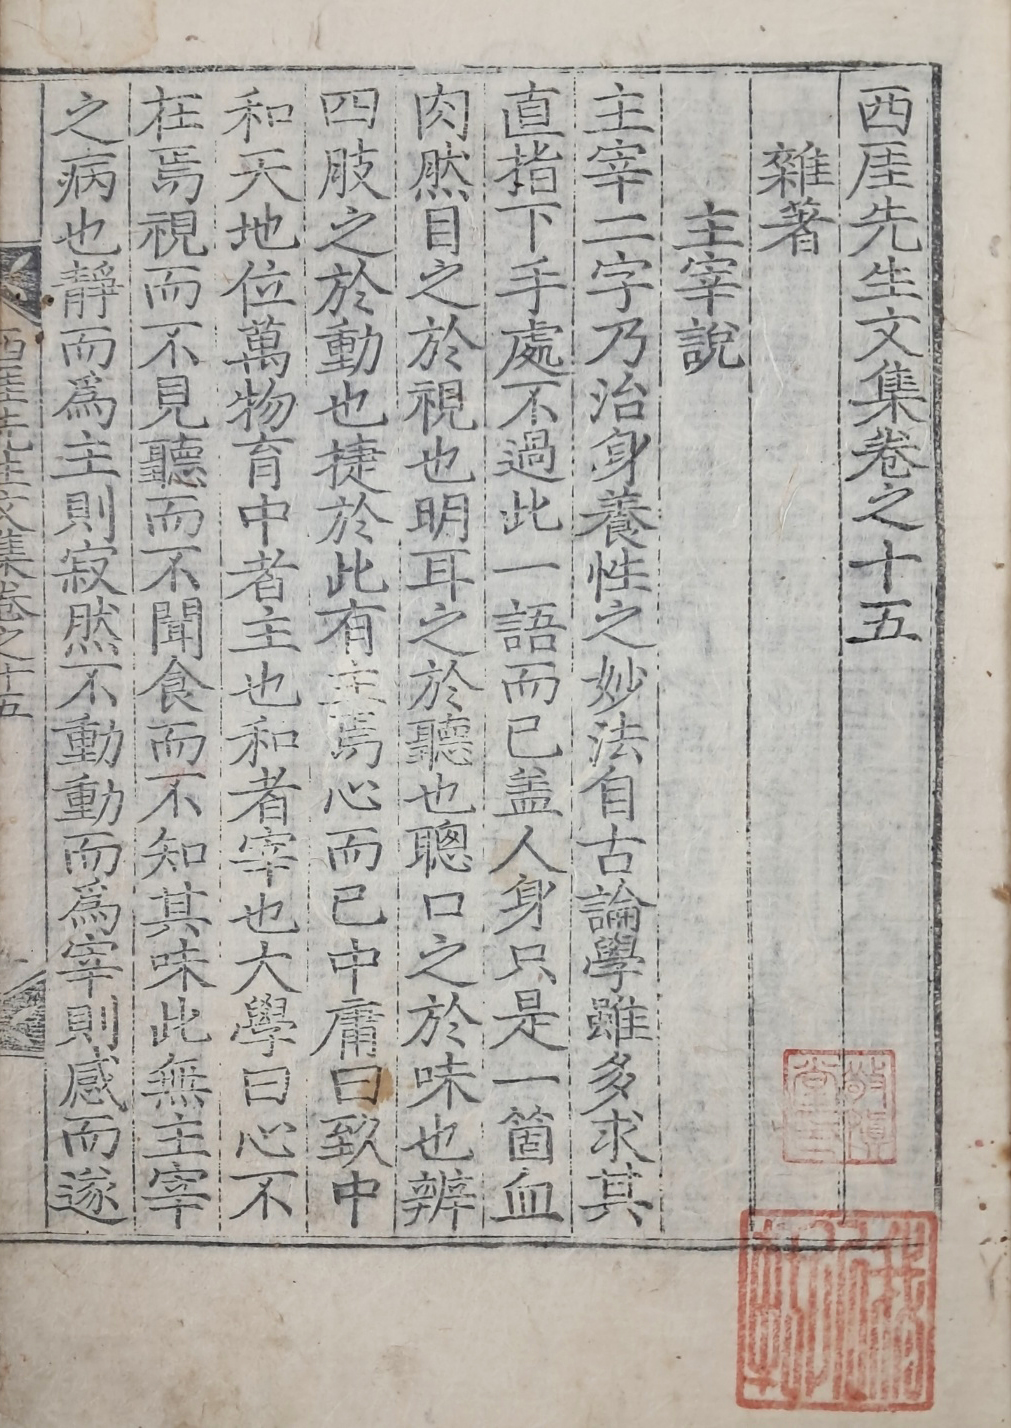 西厓先生文集卷之十五
雜著
主宰說
主宰二字乃治身養性之妙法自古論學雖多求其
直指下手處不過此一語而已盖人身只是一箇血
肉然目之於視也明耳之於聽也聰口之於味也辨
四肢之於動也捷於此有主焉心而已中庸曰致中
和天地位萬物育中者主也和者宰也大學曰心不
在焉視而不見聽而不聞食而不知其味此無主宰
之病也靜而爲主則寂然不動動而爲宰則感而遂
西厓先生文集卷之十五